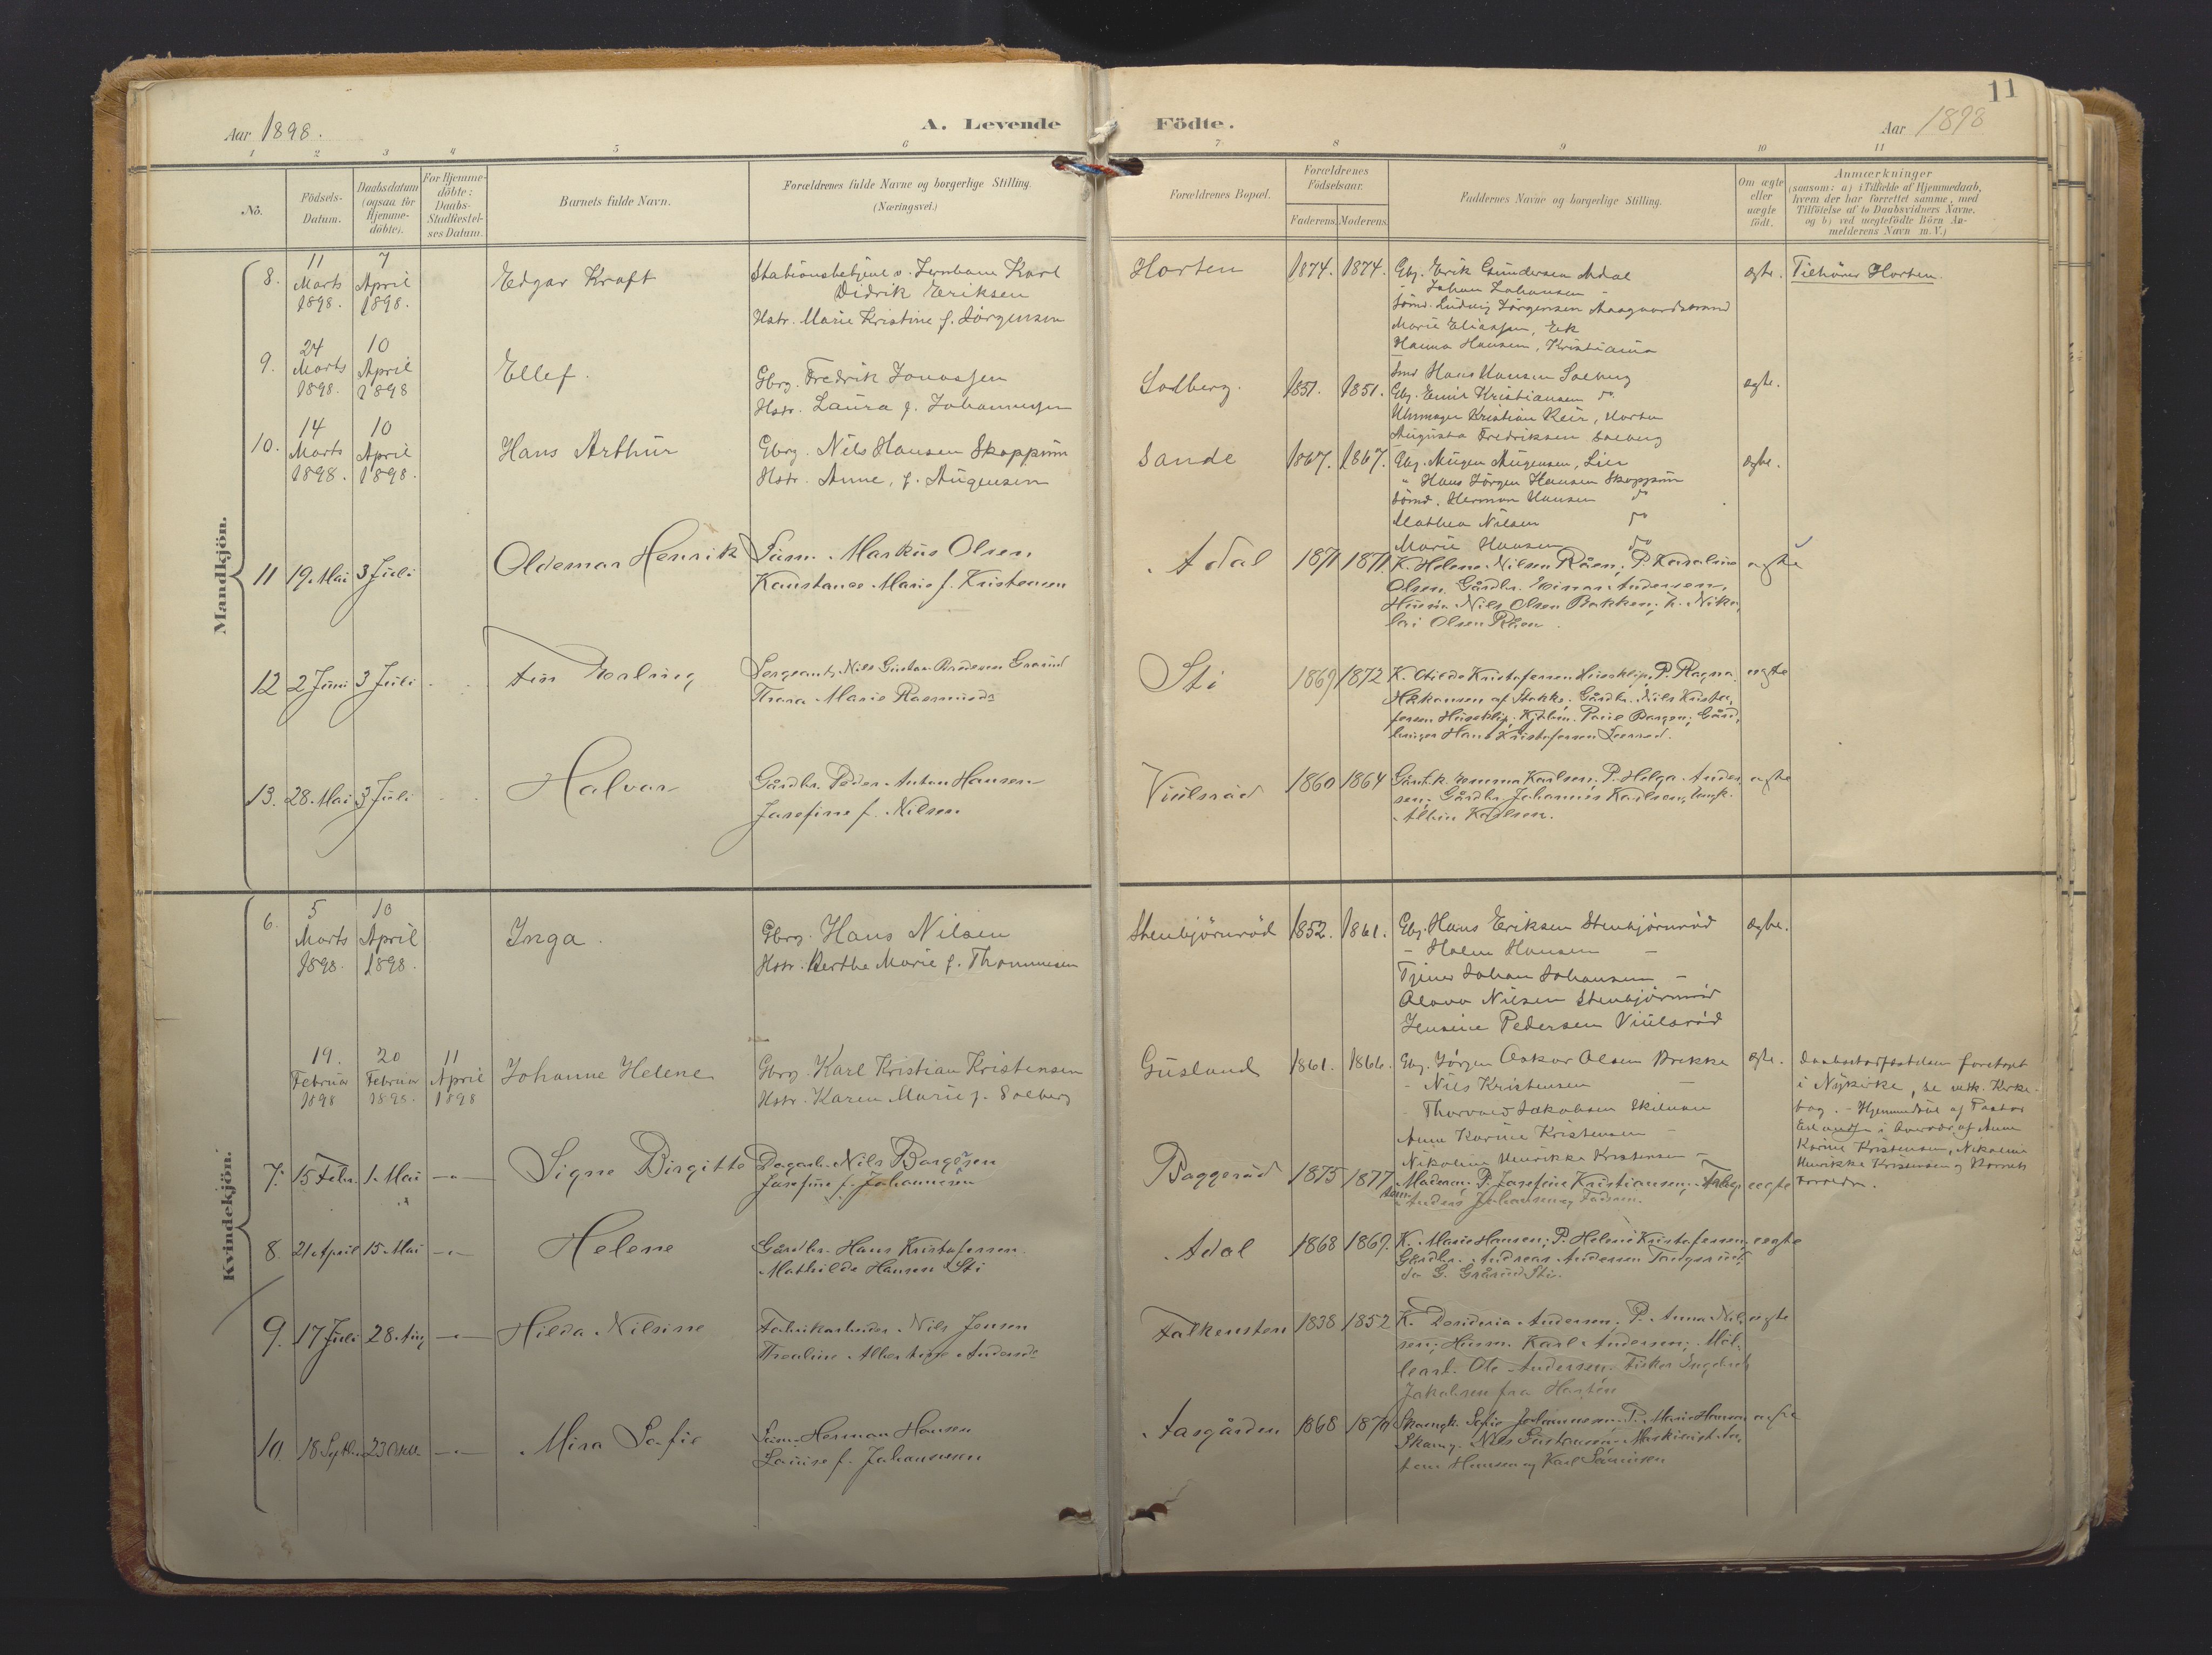 11
Aar 1898.
A. Levende Födte.
Aar 1898
1 2 3 4 5 6 7 8 9 10 11
No.
Födsels-Datum.
Daabsdatum (ogsaa for Hjemme-döbte).
For Hjemme-döbte: Daabs-Stadfæstel-ses Datum.
Barnets fulde Navn.
Forældrenes fulde Navne og borgerlige Stilling.
(Næringsvei.)
Forældrenes Bopæl.
Forældrenes Födselsaar.
Faderens. Moderens.
Faddernes Navne og borgerlige Stilling.
Om ægte eller uægte födt.
Anmærkninger
(saasom: a) i Tilfælde af Hjemmedaab,
hvem der har forrettet samme, med
Tilföielse af to Daabsvidners Navne.
og b) ved uægtefödte Börn An-
melderens Navn m. V.)
Mandkjön.
8. 11 Marts 1898. 7 April 1898. Edgar Kraft
Stationsbetjent v. Jernbane Karl
Didrik Eriksen
Hstr. Marie Kristine f. Jörgensen
Horten 1874. 1874.
Gbg. Erik Gundersen Adal
" Johan Johansen "
Sömd. Ludvig Jörgensen Aasgaardstrand
Marie Eliassen, Eik
Hanna Hansen, Kristiania
ægte. Tilhörer Horten.
9. 24 Marts 1898. 10 April 1898 Ellef.
Gbrg. Fredrik Jonassen
Hstr. Laura f. Johannesen
Solberg. 1851. 1851.
Smd Hans Hansen Solberg
Gbg. Emil Kristiansen do
Uhrmager Kristian Reir, Horten
Augusta Fredriksen Solberg
ægte.
10. 14 Marts 1898. 10 April 1898. Hans Arthur
Gbrg. Nils Hansen Skoppum
Hstr. Anne, f. Mügensen
Sande 1867. 1867.
Gbg. Mügen Mügensen, Lier
" Hans Jörgen Hansen Skoppum
Sömd. Herman Hansen do
Mathea Nilsen do
Marie Hansen do
ægte.
11 19. Mai 3 Juli Oldemar Henrik
Markus Olsen
Konstance Marie f. Kristensen
Adal 1871 1871.
K. Helene Nilsen Råen; P. Karoline
Olsen, Gårdbr. Einar Andersen,
Husm. Nils Olsen Bakken; Niko
lai Olsen Råen.
ægte
12 2 Juni 3 Juli Finn Erling
Sergeant Nils Gustav Gråsrud
Thora Marie Rasmusdr
Sti 1869 1872
K. Otilde Kristofersen Huseklep, P. Ragna
Håkonsen af Stokke, Gårdbr. Nils Kristof-
fersen Huseklep, Paul Borgen; Gård
bruger Hans Kristofersen
ægte
13. 28. Mai 3 Juli Halvor
Gårdbr. Peder Anton Hansen
Josefine f. Nilsen
Viulsröd 1860 1864
Gårdk. Emma Karlsen. P. Helga Ander
sen; Gårdbr. Johannes Karlsen, Ungk.
Albin Karlsen.
ægte
Kvindekjön.
6. 5 Marts 1898. 10 April 1898. Inga.
Gbrg. Hans Nilsen
Hstr. Berthe Marie f. Thommesen
Stenbjörnröd 1852. 1861.
Gbg. Hans Eriksen Stenbjörnröd
- Holm Hansen -
Tjener Johan Johansen -
Olava Nilsen Stenbjörnröd
Jensine Pedersen Viulsröd
ægte.
19. Februar 1898 20 Februar 1898. 11 April 1898 Johanne Helene
Gbrg. Karl Kristian Kristensen
Hstr. Karen Marie f. Solberg
Gusland 1861. 1866.
Gbg. Jörgen Oskar Olsen Brekke
- Nils Kristensen -
Thorvald Jakobsen
Anna Karine Kristensen -
Nikoline Henrikke Kristensen -
ægte.
Daabsstadfæstelsen foretaget
i Nykirke, se vedk. Kirke-
bog. - Hjemmedöbt af Pastor
i Overvær af Anna
Karine Kristensen, Nikoline
Henrikke Kristensen og Barnets
Forældre.
7. 15 Febr. 1. Mai Signe Birgitte
Dagarb. Nils Borgersen
Josefine f. Johannesen
Baggeröd 1875 1877
Moderen; P. Josefine Kristiansen;
Anders Johansen og Faderen.
uegte
8. 21 April 15. Mai Helene
Gårdbr. Hans Kristofersen
Mathilde Hansen Sti
Adal 1868 1867.
K. Marie Hansen; P. Helene Kristofersen
Gårdbr. Andreas Andersen
do G. Gråsrud Sti.
uegte
9. 17 Juli 28. Aug Hilda Nilsine
Fabrikarbeider Nils Jensen
Thealine Albertine Andersdr
Falkensten 1838 1852
K. Andersen, P. Anna Nil
sen; Husm. Karl Andersen; Möl-
learb. Ole Andersen. Fisker Engebret
Jakobsen fra Horten
ægte
10. 18 Septbr. 23 Oktbr. Mina Sofie
Herman Hansen
Louise f. Johannesen
Aasgården 1868 1870
Sofie Johannesen. P. Marie Hansen
Nils Maskinist An-
ton Hansen og Karl
ægte